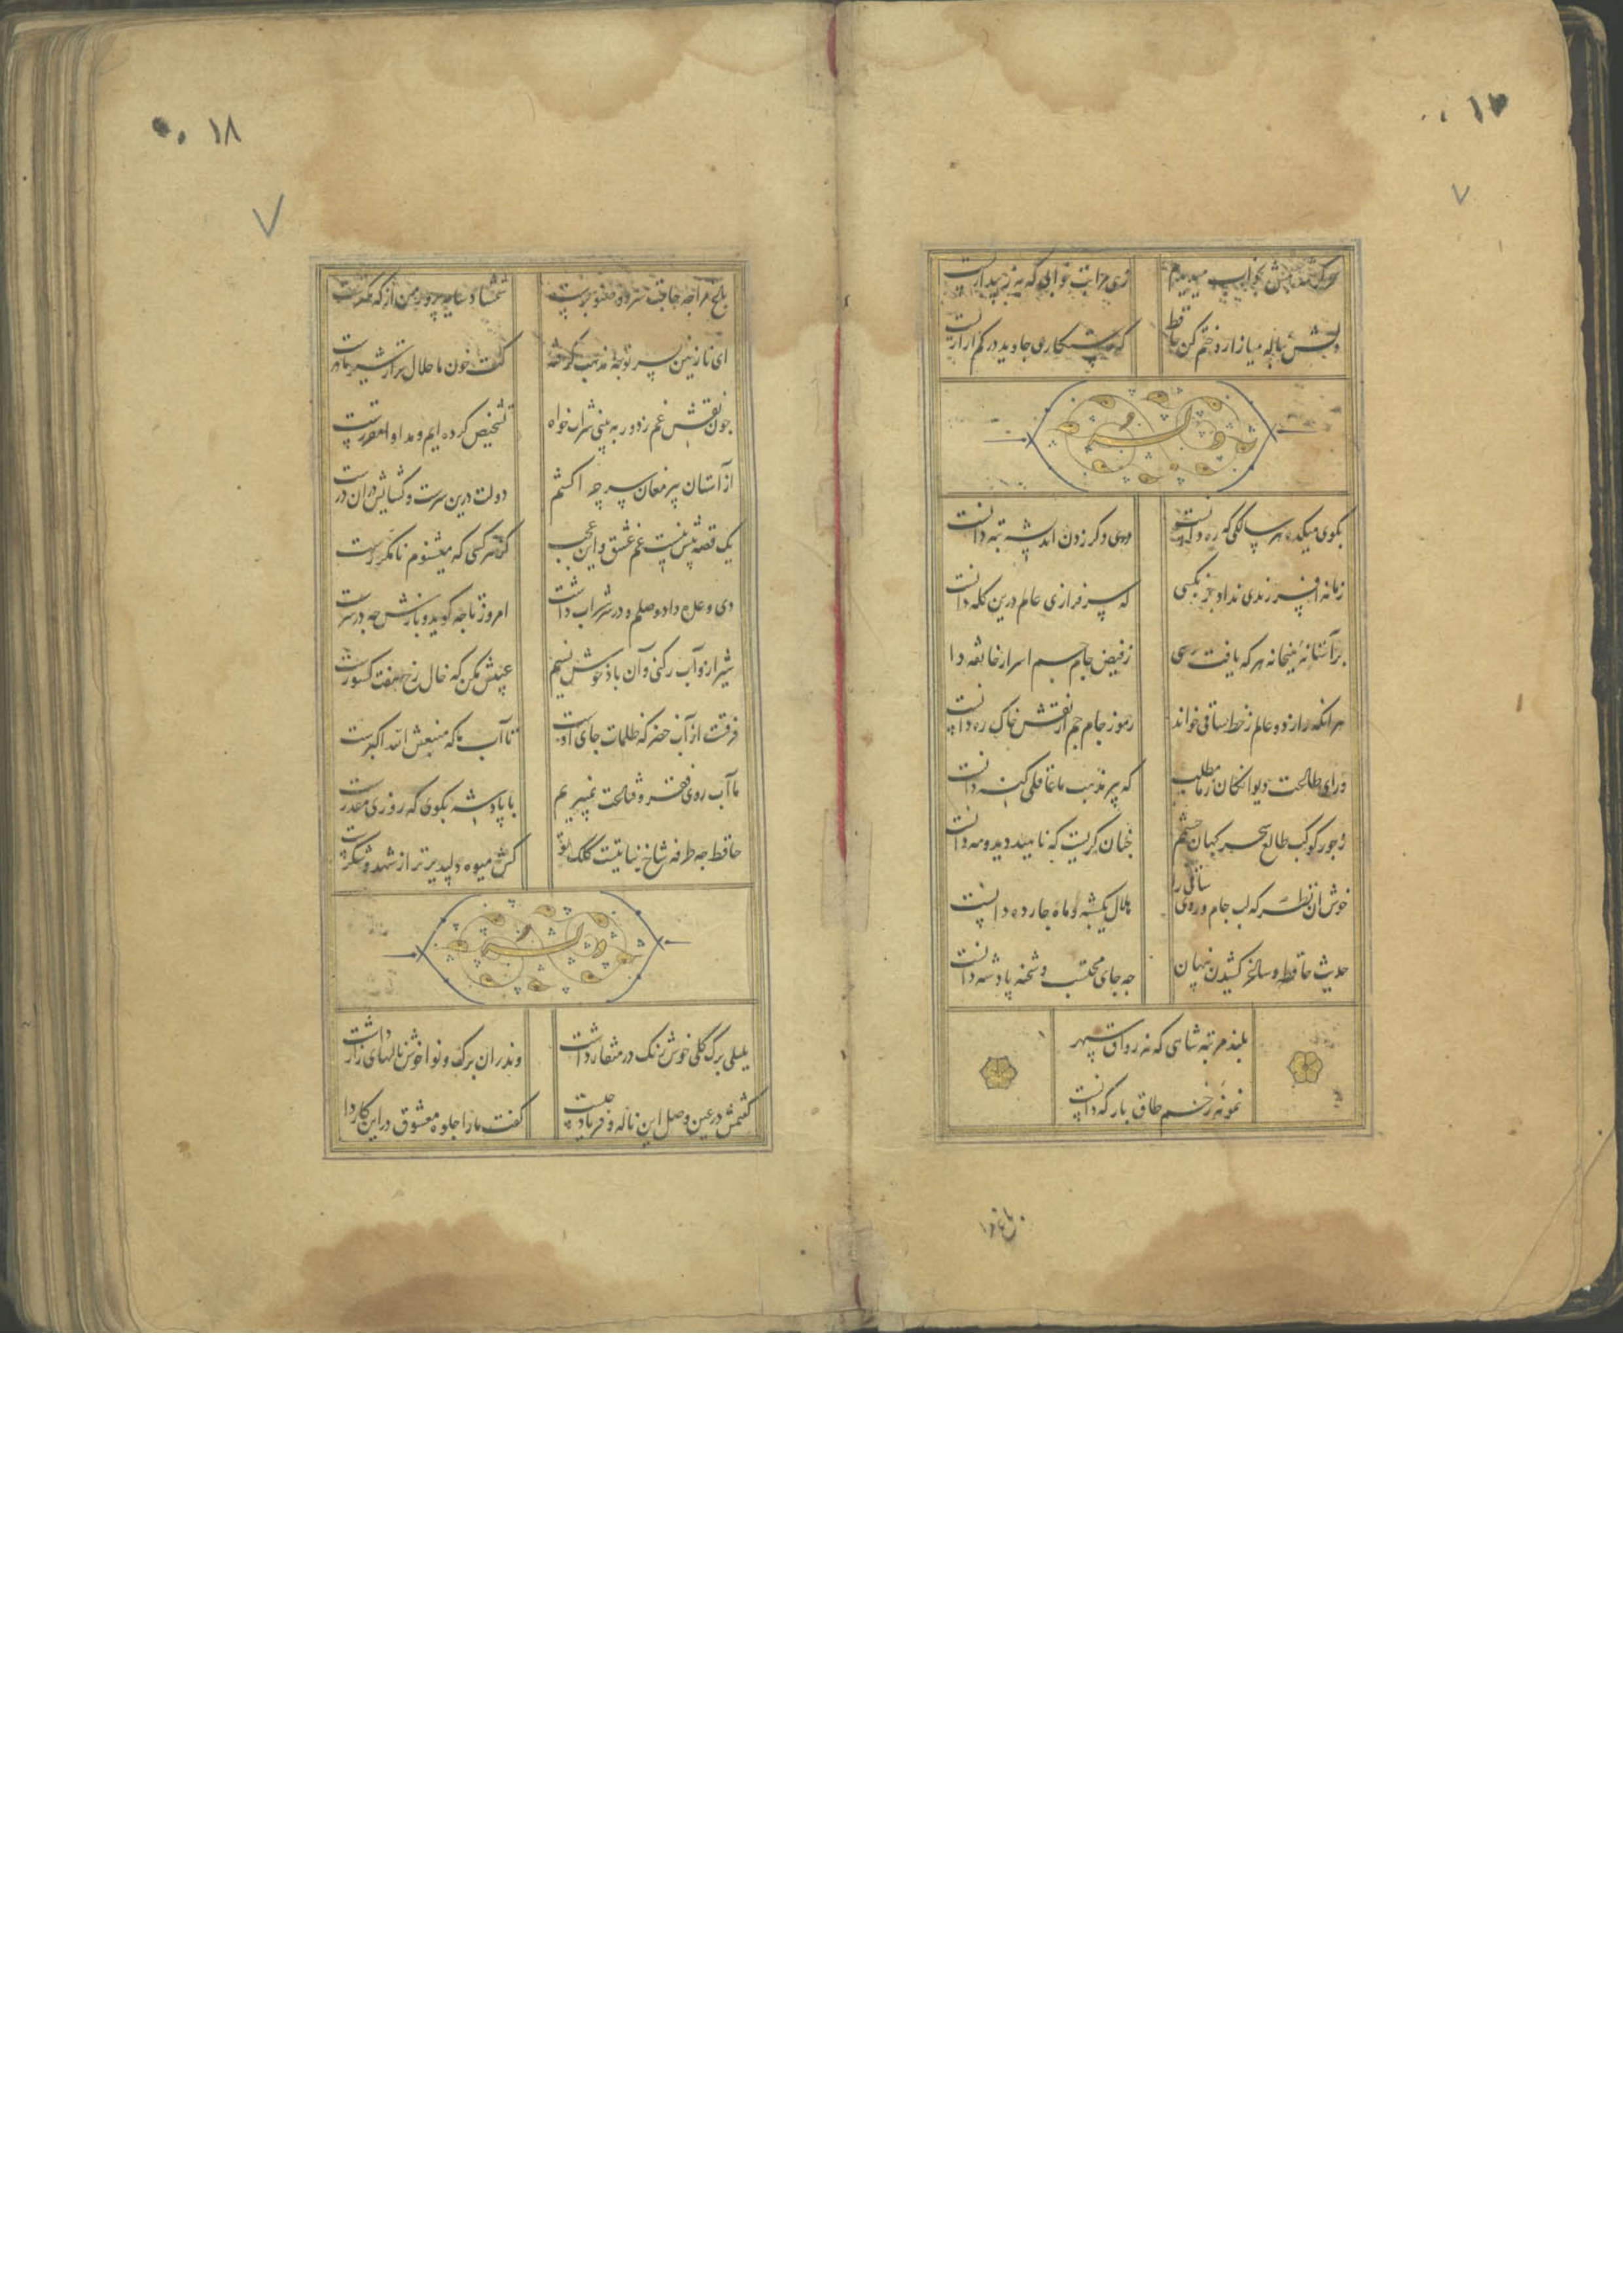 ۱۷
سحر کرشمه چشمش بخواب میدیدم
زهی مراتب خوابی که به ز بیداریست
دلش بناله میازار و ختم کن حافظ
که رستگاری جاوید در کم آزاریست
وله
بکوی میکده هر سالکی که ره دانست
دری دگر زدن اندیشه تبه دانست
زمانه افسر رندی نداد جز بکسی
که سرفرازی عالم درین کله دانست
بر آستانه میخانه هر که یافت رهی
ز فیض جام می اسرار خانقه دا
هر آنکه راز دو عالم ز خط ساقی خواند
رموز جام جم از نقش خاک ره دانست
ورای طاعت دیوانگان ز ما مطلب
که پیر مذهب ما عاقلی کنه دانست
ز جور کوکب طالع سحرکهان چشمم
چنان کریست که ناهید دید و مه دانست
خوش آن نظر که لب جام و روی ساقی را
هلال یکشبه و ماه چارده دانست
حدیث حافظ و ساغر کشیدن پنهان
چه جای محتسب و شحنه پادشه دانست
بلند مرتبه شاهی که نه رواق سپهر
نمونه ز خم طاق بارکه دانست
باغ مرا
۱۸
باغ مرا چه حاجت سرو و صنوبرست
شمشاد سایه پرور من از که کمترست
ای نازنین پسر تو چه مذهب کرفته
کت خون ما حلال تر از شیر مادرست
چون نقش غم ز دور به بینی شراب خواه
تشخیص کرده ایم و مداوا مقررست
از آستان پیر مغان سر چرا کشم
دولت درین سرست و کشایش در ان درست
یک قصه بیش نیست غم عشق و این عجب
کز هر کسی که میشنوم نامکررست
دی وعده داد وصلم و در سر شراب داشت
امروز تا چه کوید و بازش چه در سرست
شیراز و آب رکنی و آن باد خوش نسیم
عیبش مکن که خال رخ هفت کشورست
فرقست از آب خضر که ظلمات جای اوست
تا آب ما که منبعش الله اکبرست
ما آب روی فقر و قناعت نمی‌بریم
با پادشه بکوی که روزی مقدرست
حافظ چه طرفه شاخ نباتیست کلک تو
کش میوه دلپذیرتر از شهد و شکرست
وله
بلبلی برک کلی خوش رنک در منقار داشت
وندران برک و نوا خوش نالهای زار داشت
کفتمش در عین وصل این ناله و فریاد چیست
کفت ما را جلوه معشوق در این کار دا